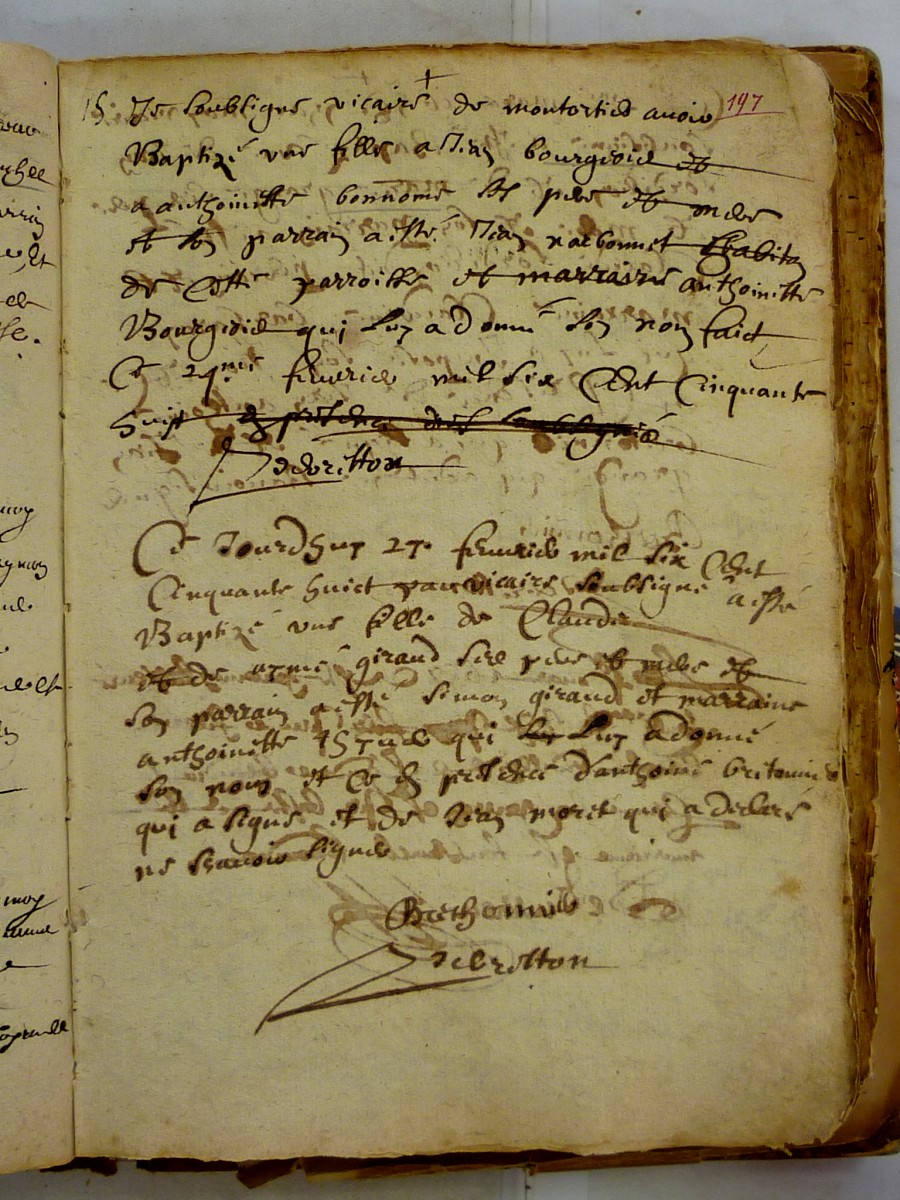 197
Je soubsigne vicaire de montortier avoir
Baptizé une fille a Jean bourgeois et
a anthoinette bonnome ses pere et mere
et son parrain a esté Jean narbonnet habitan
de cette parroisse et marraine anthoinette
Bourgeois qui luy a donné son nom faict
Ce 24me feuvrier mil six Cent Cinquante
huict en presence des soubsignés
Debritton
Ce Jourdhuy 27e feuvrier mil six Cent
Cinquante huict par vicaire soubsigné a esté
Baptizé une fille de Claude
et de aymé giraud ses pere et mere et
son parrain a esté Simon giraud et marraine
anthoinette qui luy a donné
son nom et ce en presence danthoine
qui a signé et de Jean moret qui a declaré
ne scavoir signer
Debritton